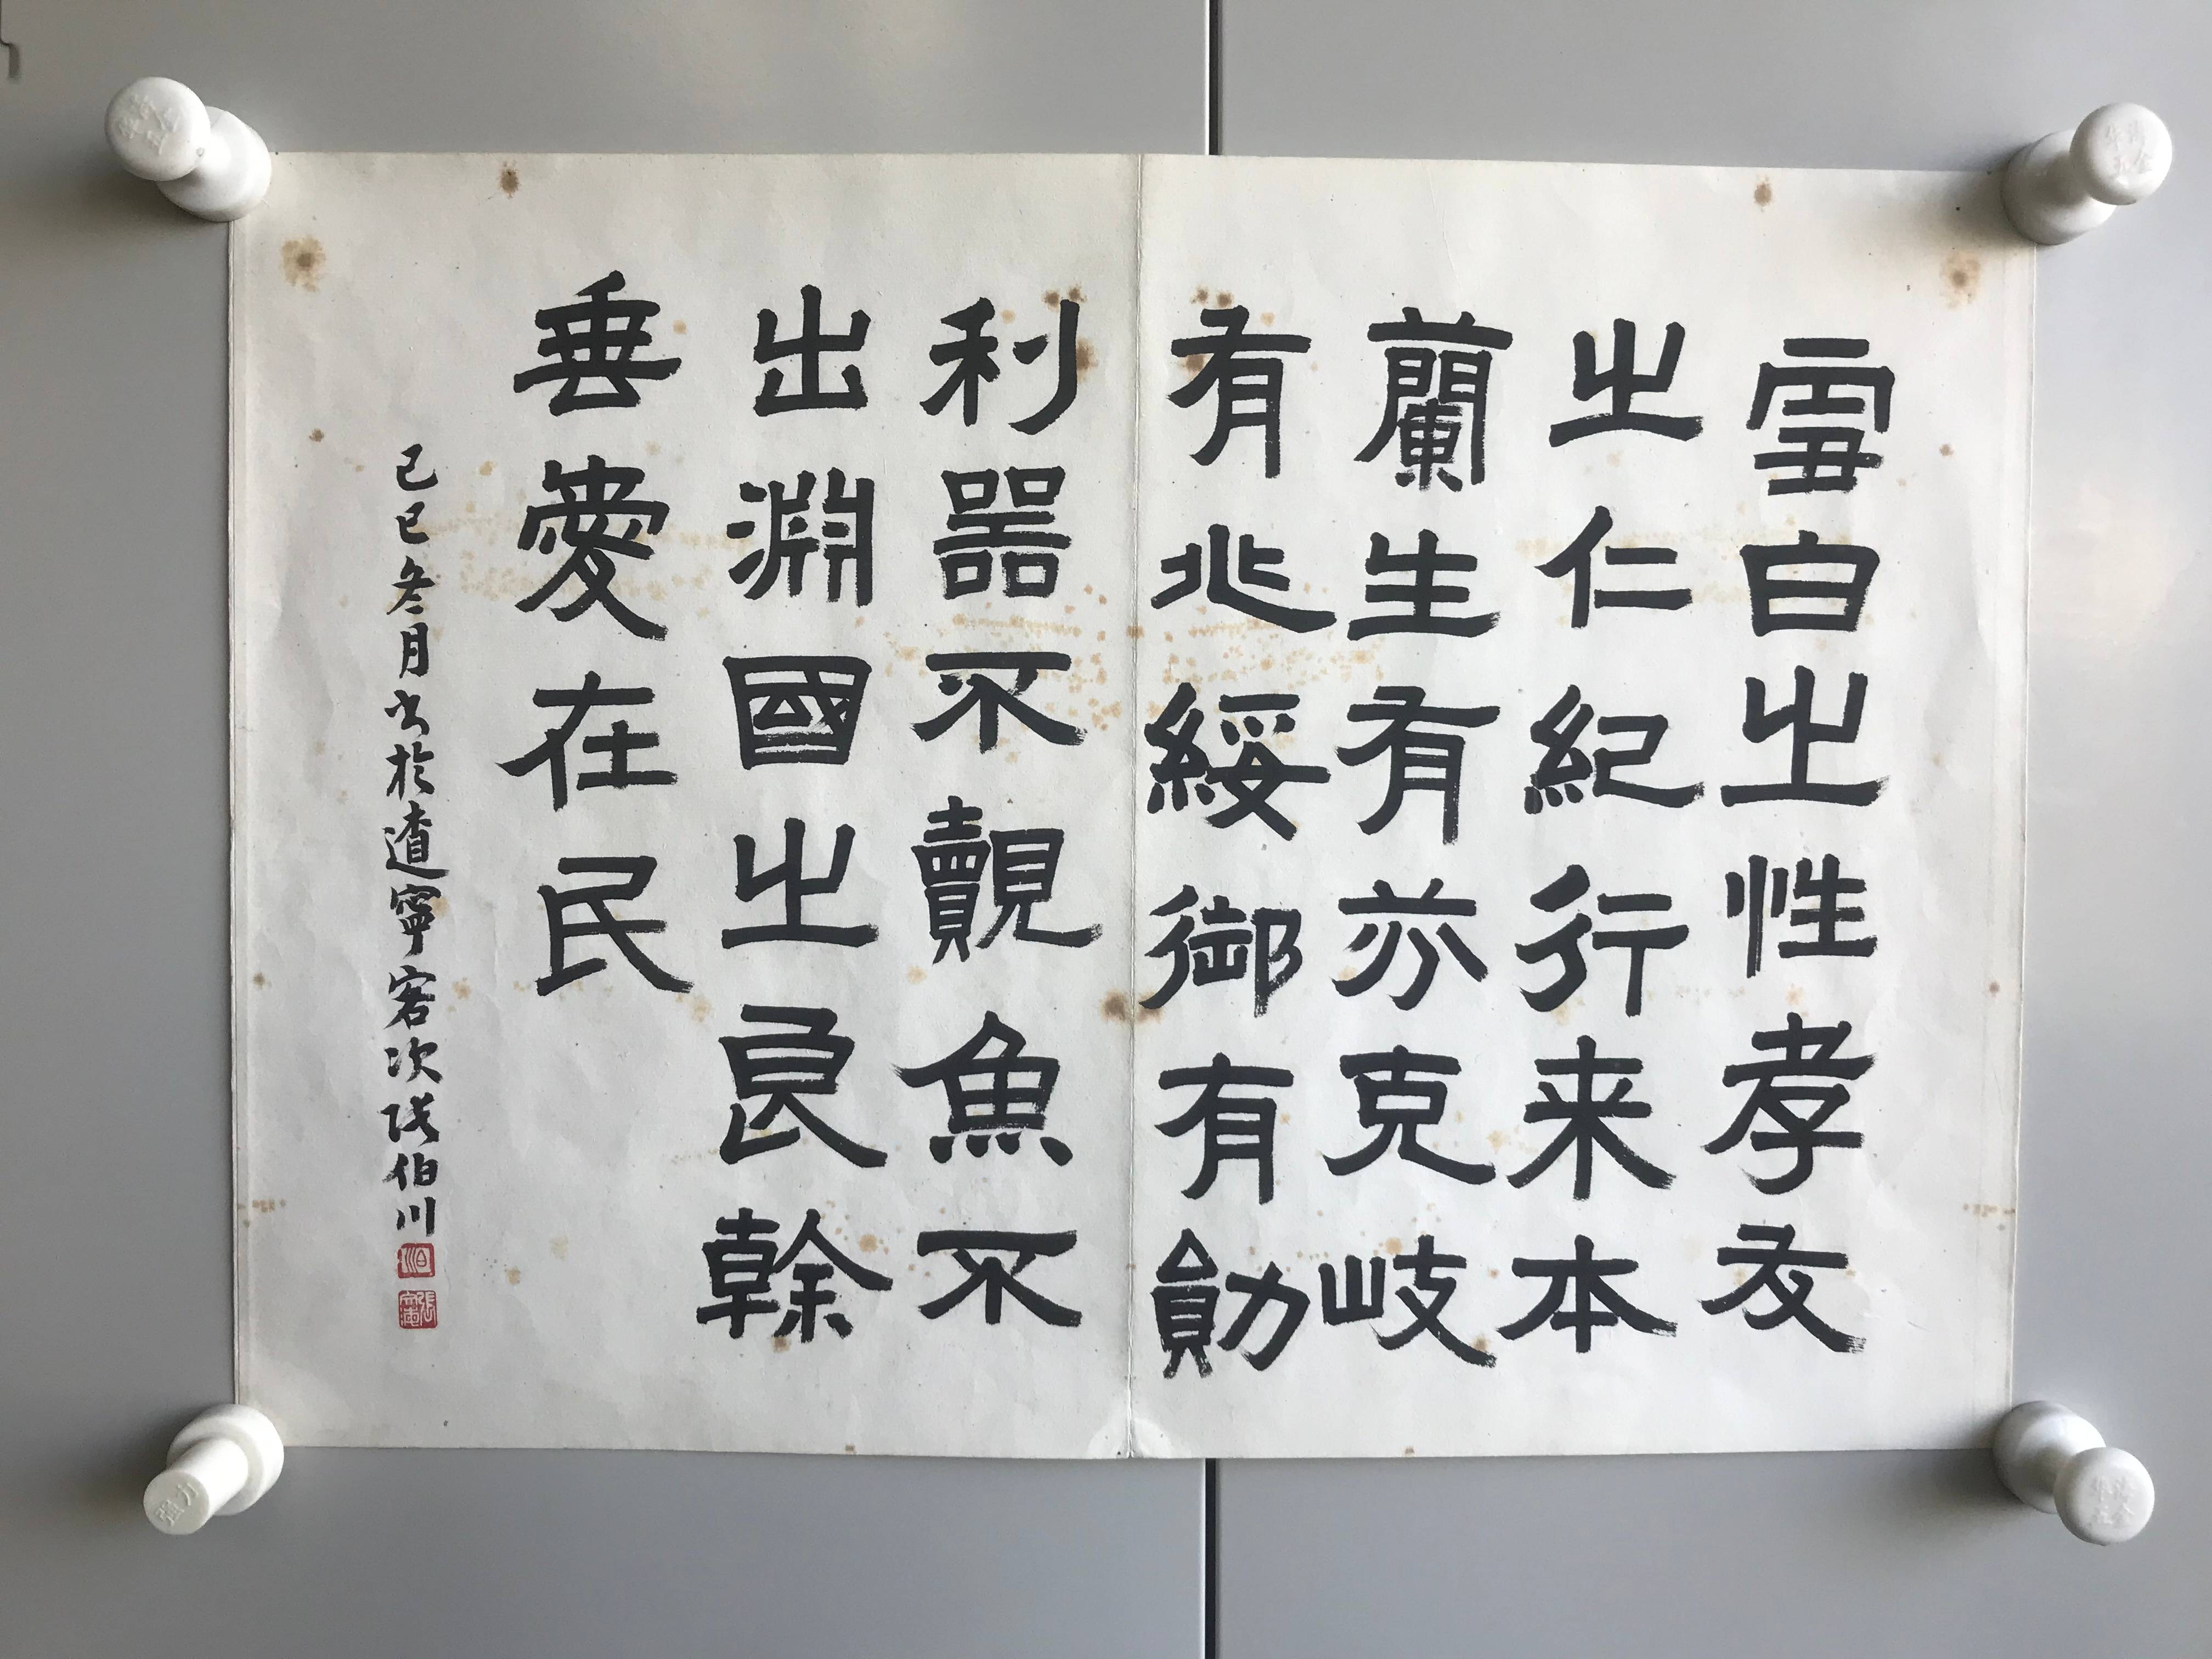 雪白之性孝友
之仁紀行来本
蘭生有芬克岐
有兆綏御有勛
利器不覿魚不
出淵國之良幹
垂愛在民
己巳冬月書於遵寧客次 伯川